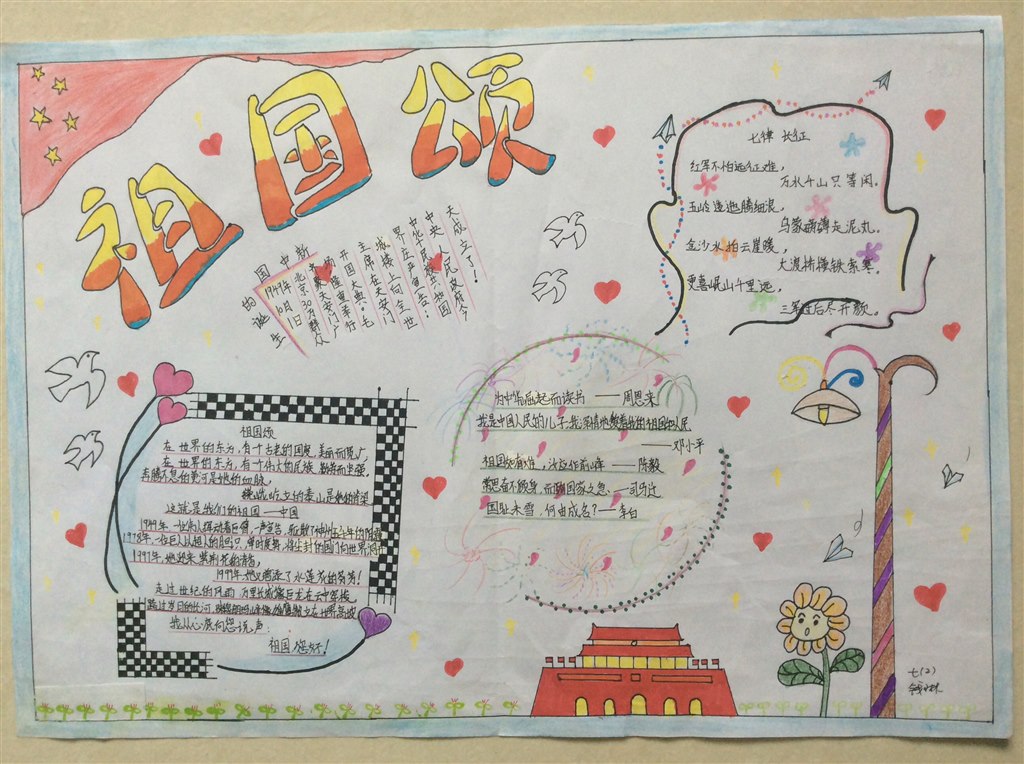 祖国颂
新中国的诞生
1949年10月1日
北京30万群众
齐聚天安门广
场隆重举行
开国大典。毛
主席在天安门
城楼上向全世
界庄严宣告：
中华人民共和国
中央人民政府今
天成立了！
七律 长征
红军不怕远征难，
万水千山只等闲。
五岭逶迤腾细浪，
乌蒙磅礴走泥丸。
金沙水拍云崖暖，
大渡桥横铁索寒。
更喜岷山千里雪，
三军过后尽开颜。
祖国颂
在世界的东方，有个古老的国度，美丽而宽广，
在世界的东方，有个伟大的民族，勤劳而坚强，
奔腾不息的黄河是她的血脉，
巍峨屹立的泰山是她的脊梁
这就是我们的祖国——中国
1949年，一位伟人挥动着巨臂，一声宣告，
1978年，一位巨人以超人的胆识，
1997年，她迎来紫荆花的清香，
1999年，她又增添了水莲花的芬芳！
走过世纪的风雨，万里长城像巨龙在云中穿梭
跨过岁月的长河，
我从心底向您说声：
祖国，您好！
为中华崛起而读书 ——周恩来
我是中国人民的儿子，我深情地爱着我的祖国和人民
——邓小平
祖国如有难，汝应作前锋 ——陈毅
常思奋不顾身，而殉国家之急。——司马迁
国耻未雪，何由成名？——李白
七(2)